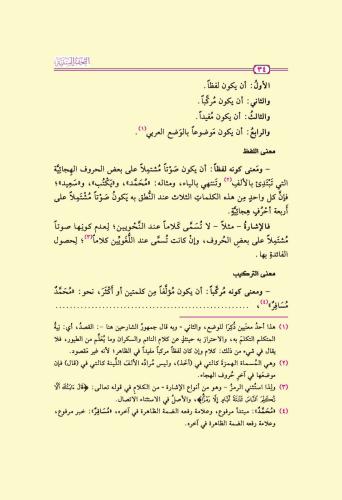 التحفة السنية
٣٤
الأولُ: أن يكون لفظاً.
والثاني: أن يكون مُركَّباً.
والثالثُ: أن يكون مُفيداً.
والرابعُ: أن يكون مَوضوعاً بالوَضع العربي(١).
معنى اللفظ
– ومَعنى كونه لفظاً: أن يكون صَوْتاً مُشتمِلاً على بعض الحروف الهِجائيَّة
التي تَبْتَدِئ بالألف(٢) وتَنتهي بالياء، ومثاله: «مُحَمَّد»، و«يَكْتُب»، و«سَعِيد»؛
فإنَّ كل واحدٍ مِن هذه الكلماتِ الثلاث عند النُّطق به يكونُ صَوْتاً مُشْتَمِلاً على
أربعة أحْرُفٍ هِجائيَّةٍ.
فالإشارةُ – مثلاً – لا تُسَمَّى كلاماً عند النَّحْويين؛ لعدم كونِها صوتاً
مُشْتَمِلاً على بعضِ الحُروف، وإنْ كانت تُسمَّى عند اللُّغَويِّين كلاماً(٣)؛ لِحصولِ
الفائدةِ بها.
معنى التركيب
– ومعنى كونه مُركَّباً: أن يكون مُؤلَّفاً مِن كلمتين أو أكْثَرَ، نحو: «مُحَمَّدٌ
مُسَافِرٌ»(٤)، ........................................
(١) هذا أحدُ معنَيين ذُكِرا للوضع، والثاني - وبه قال جمهورُ الشارحين هنا -: القصدُ، أي: نِيةُ
المتكلم التكلم به، والاحتراز به حينئذٍ عن كلام النائم والسكران وما يُعلَّم من الطيور، فلا
يقال في شيء من ذلك: كلام وإن كان لفظاً مركباً مفيداً في الظاهر؛ لأنه غير مقصود.
(٢) وهي المسماة الهمزةَ كالتي في (أخذ)، وليس مُراده الألف اللَّينة كالتي في (قال) فإن
موضعها في آخر حُروف الهجاء.
(٣) ولِذا استُثني الرمزُ - وهو من أنواع الإشارة - من الكلام في قوله تعالى: ﴿قَالَ ءَايَتُكَ أَلَّا
تُكَلِّمَ ٱلنَّاسَ ثَلَـٰثَةَ أَيَّامٍ إِلَّا رَمْزًا﴾، والأصلُ في الاستثناء الاتصال.
(٤) «مُحَمَّدٌ»: مبتدأ مرفوع، وعلامة رفعه الضمة الظاهرة في آخره، «مُسَافِرٌ»: خبر مرفوع،
وعلامة رفعه الضمة الظاهرة في آخره.